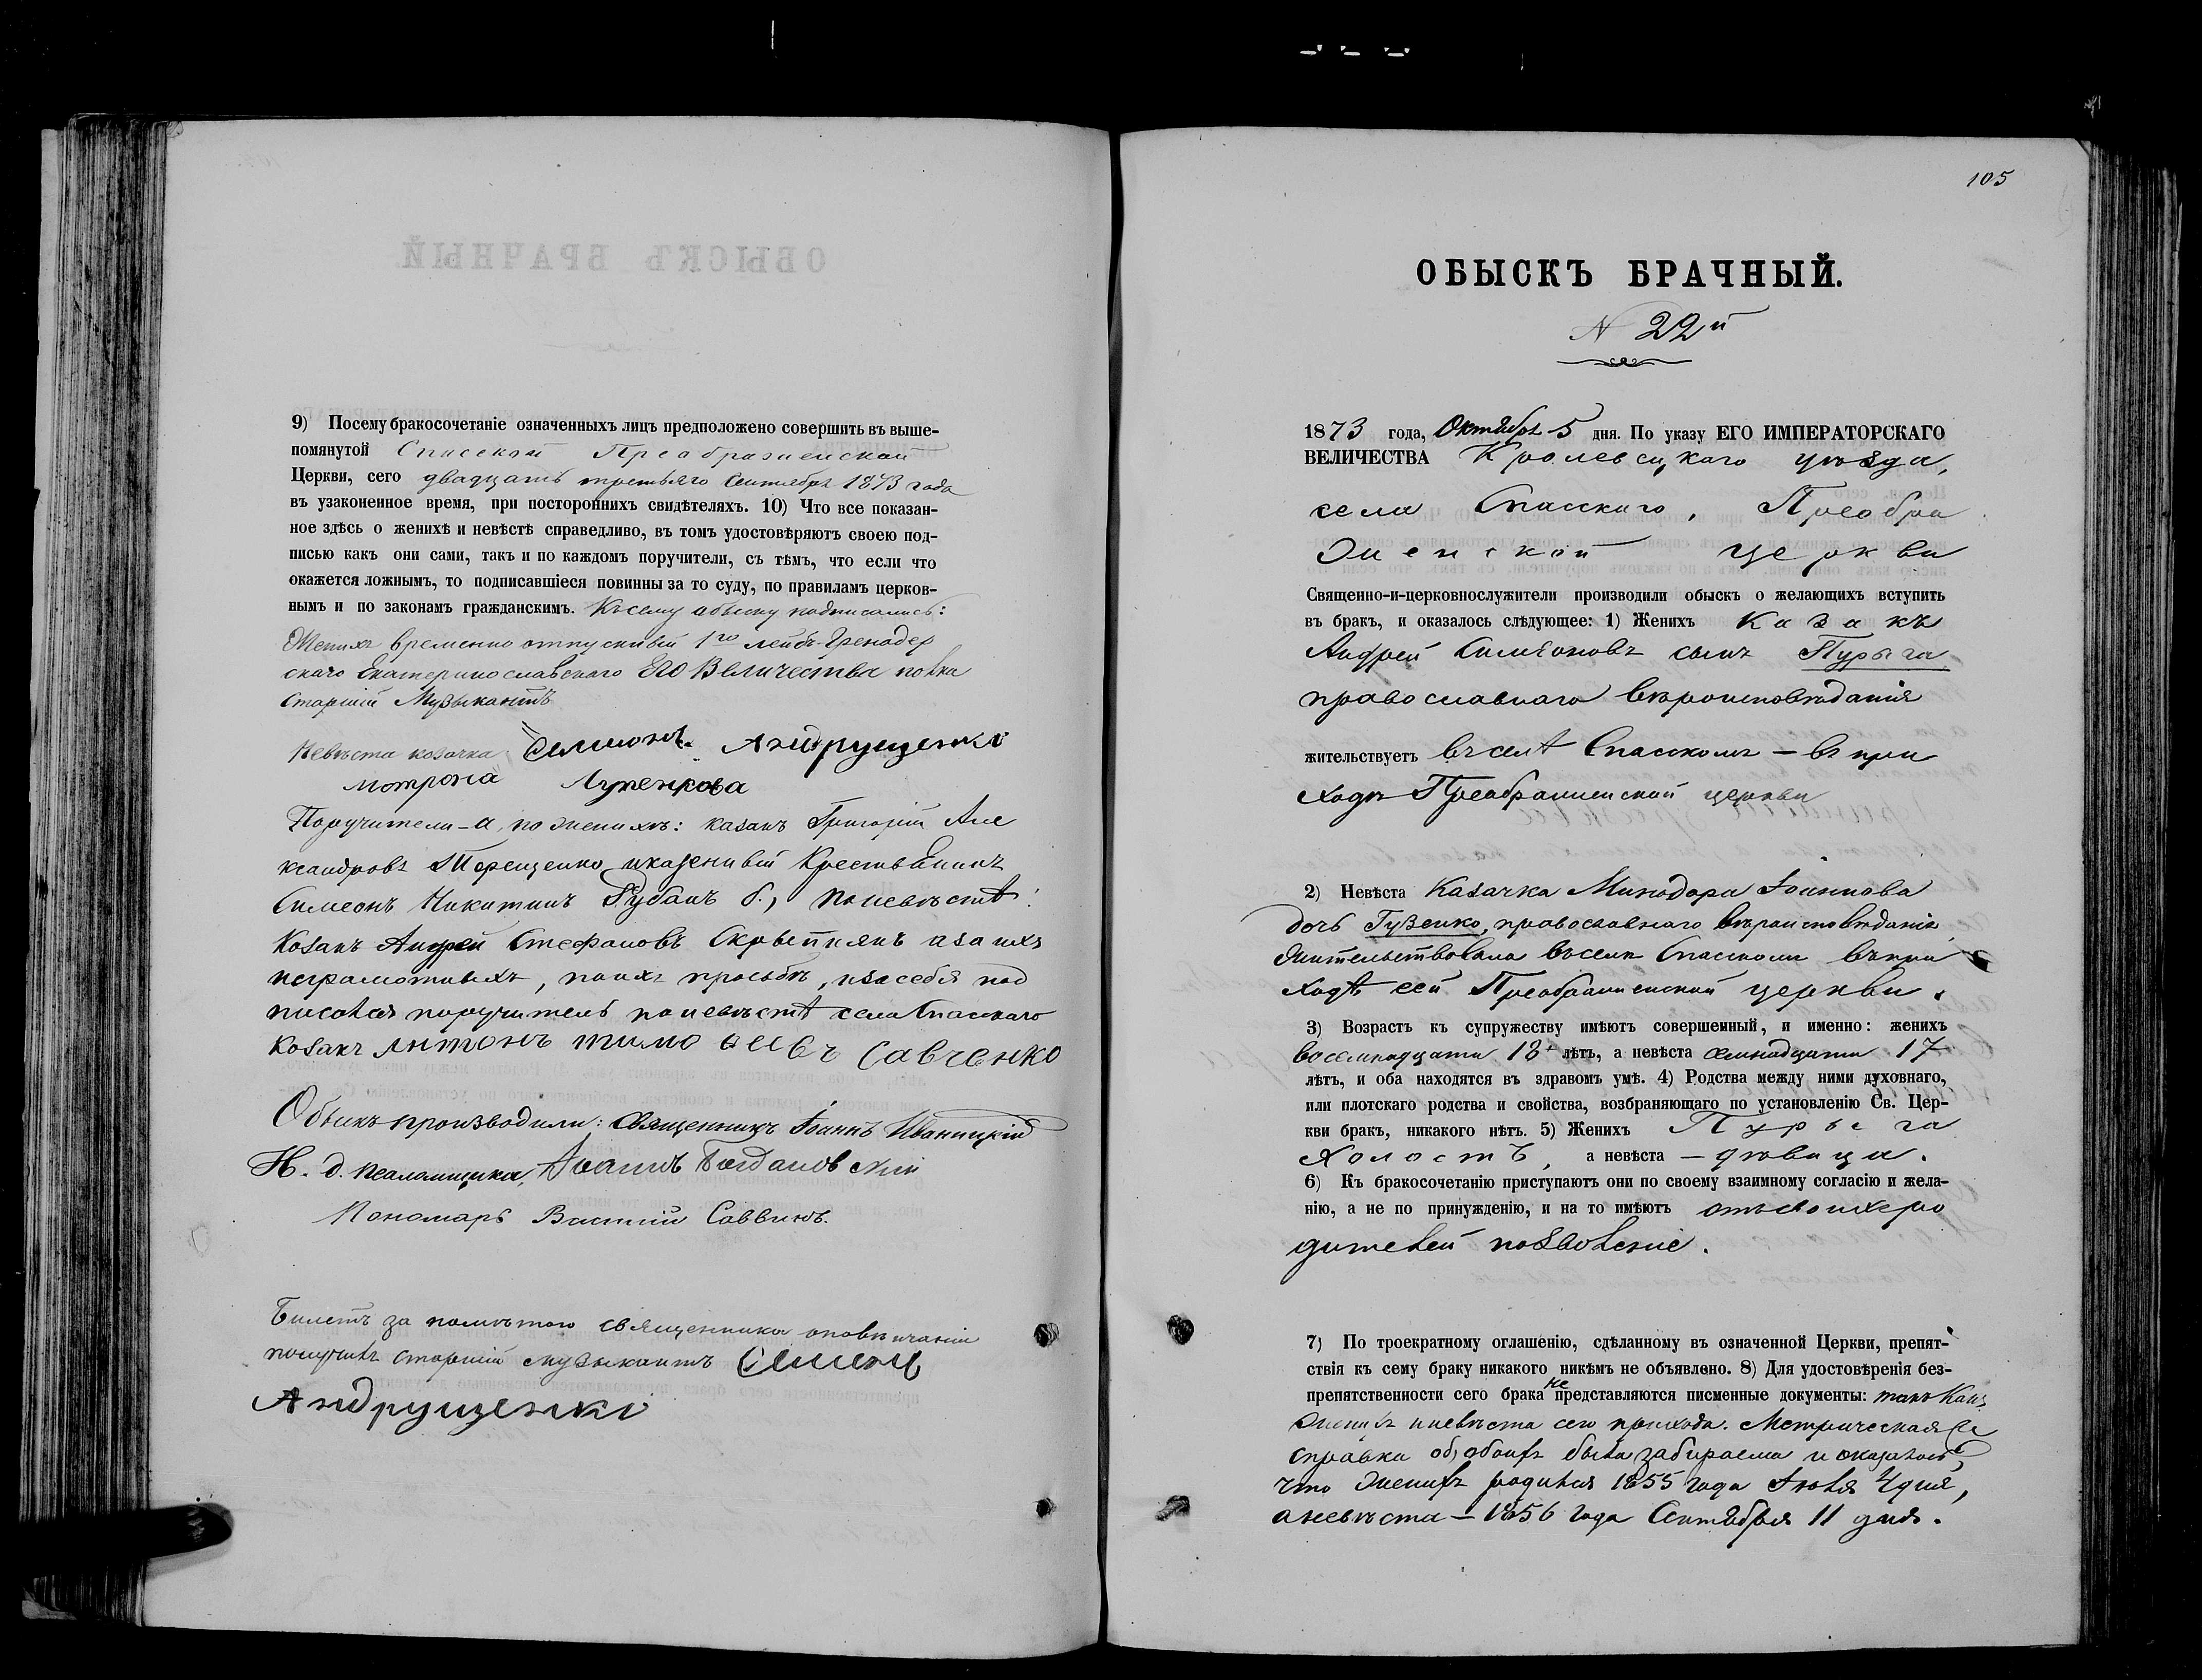 9) Посему бракосочетаніе означенныхъ лицъ предположено совершить въ выше-
помянутой Спасской Преображенской
Церкви, сего двадцать третьяго Сентября 1873 года
въ узаконенное время, при постороннихъ свидѣтеляхъ. 10) Что все показан-
ное здѣсь о женихѣ и невѣстѣ справедливо, въ томъ удостовѣряютъ своею под-
писью какъ они сами, такъ и по каждомъ поручители, съ тѣмъ, что если что
окажется ложнымъ, то подписавшіеся повинны за то суду, по правиламъ церков-
нымъ и по законамъ гражданскимъ. Къ сему обыску подписались:
Женихъ временно отпускный 1го лейбъ-Гренадер
скаго Екатеринославскаго Его Величества полка
Старшій Музыкантъ
Невѣста козачка Семионъ Андрущенкі
мотрона Луженкова
Поручители-а, по женихѣ: казакъ Григорій Але
ксандровъ и казенный Крестьянинъ
Симеонъ Никитинъ Рубанъ б., по невѣстѣ:
Козакъ Андрей Стефановъ а за ихъ
неграмотныхъ, по ихъ просьбѣ, и за себя под
писался поручитель по невѣстѣ села Спасскаго
Козакъ Антонъ тимо ѳеевъ Савченко
Обыскъ производили: Священникъ Іоаннъ Иваницкій
И. д. псаломщика, Іоаннъ Богдановскій
Пономарь Василій Саввинъ.
Билетъ за помѣтою священника о повѣнчаніи
получилъ старшій музыкантъ Семенъ
Андрущенкі
105
ОБЫСКЪ БРАЧНЫЙ.
N 22й
1873 года, Октября 5 дня. По указу ЕГО ИМПЕРАТОРСКАГО
ВЕЛИЧЕСТВА Кролевецкаго уѣзда,
села Спасскаго, Преобра
женской церкви
Священно-и-церковнослужители производили обыскъ о желающихъ вступить
въ бракъ, и оказалось слѣдующее: 1) Женихъ казакъ
Андрей Симеоновъ сынъ Пурыга
православнаго вѣроисповѣданія
жительствуетъ въ селѣ Спасскомъ – въ при
ходѣ Преображенской церкви
2) Невѣста Казачка Минодора Іоаннова
дочь Гузенко, православнаго вѣроисповѣданія
жительствовала въ селѣ Спасскомъ въ при
ходѣ сей Преображенской церкви.
3) Возрастъ къ супружеству имѣютъ совершенный, и именно: женихъ
восемнадцати 18 лѣтъ, а невѣста семнадцати 17
лѣтъ, и оба находятся въ здравомъ умѣ. 4) Родства между ними духовнаго,
или плотскаго родства и свойства, возбраняющаго по установленію Св. Цер-
кви бракъ, никакого нѣтъ. 5) Женихъ Пурыга
холостъ, а невѣста – дѣвица.
6) Къ бракосочетанію приступаютъ они по своему взаимному согласію и жела-
нію, а не по принужденію, и на то имѣютъ отъ своихъ ро
дителей позволеніе.
7) По троекратному оглашенію, сдѣланному въ означенной Церкви, препят-
ствія къ сему браку никакого никѣмъ не объявлено. 8) Для удостовѣренія без-
препятственности сего брака не представляются писменные документы: такъ какъ
женихъ и невѣста сего прихода. Метрическая
справка объ обоихъ была забираема и оказалось,
что женихъ родился 1855 года Іюля 4 дня,
а невѣста – 1856 года Сентября 11 дня.